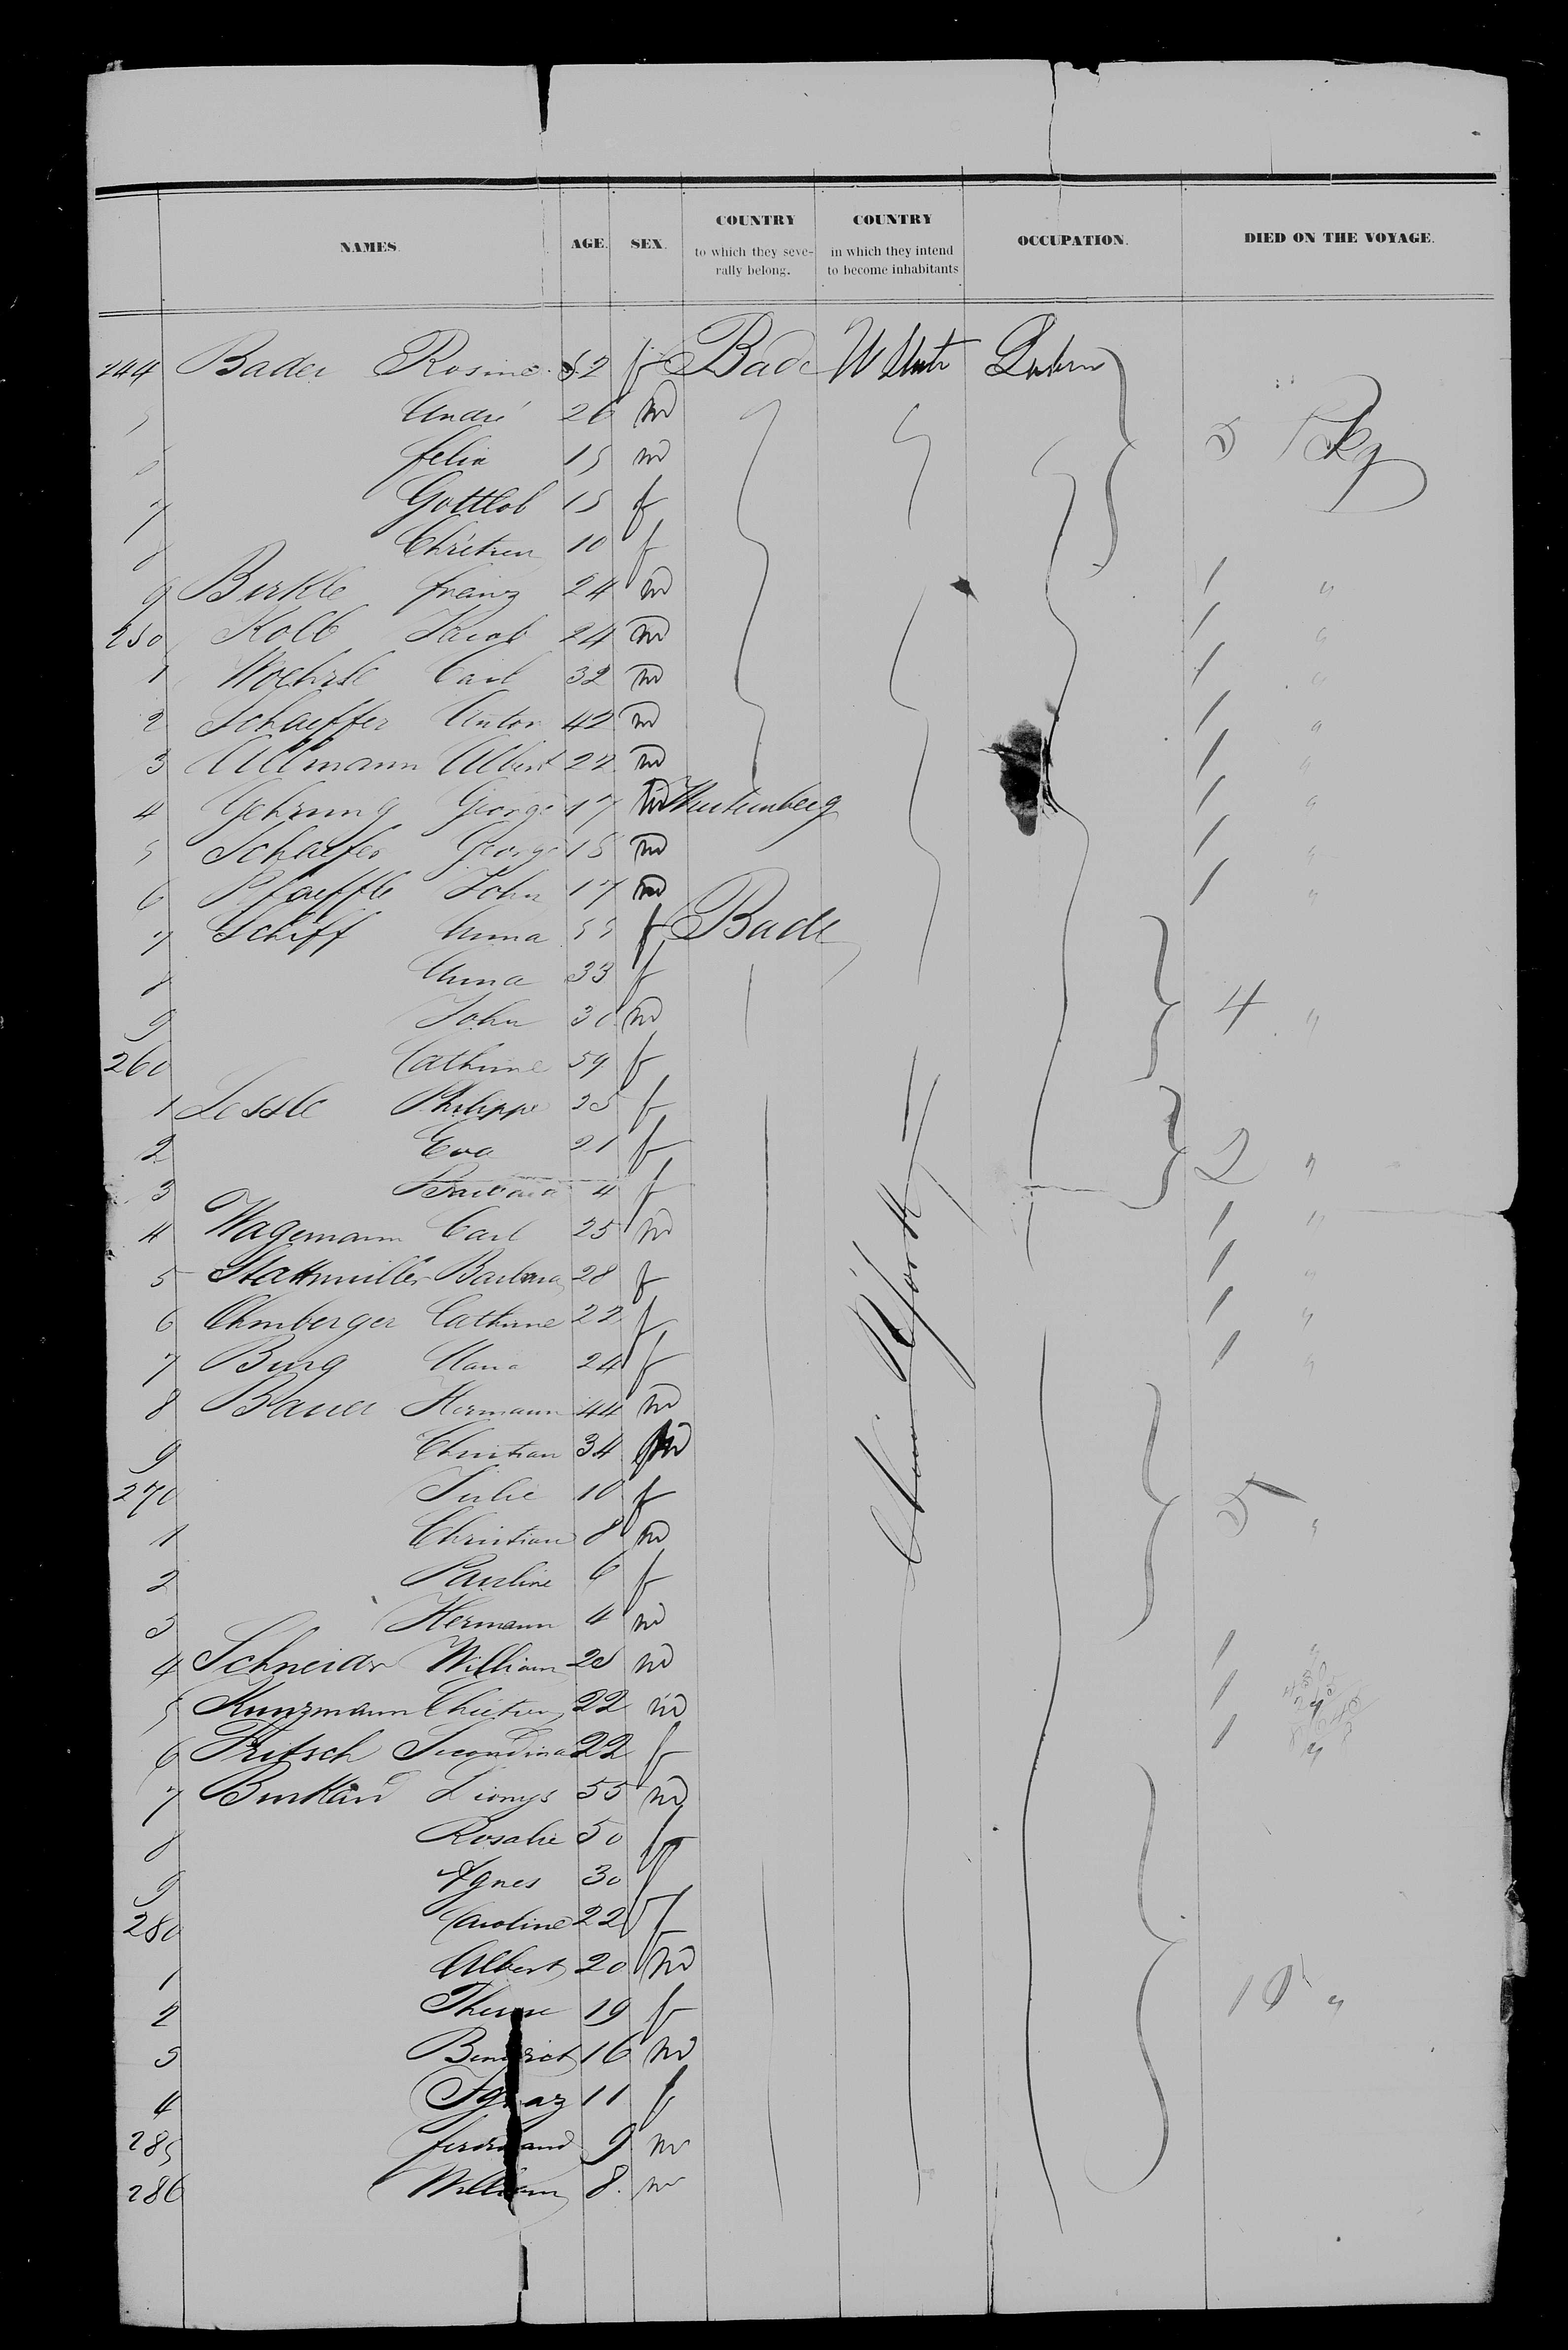 NAMES. AGE. SEX. COUNTRY to which they severally belong. COUNTRY in which they intend to become inhabitants OCCUPATION. DIED ON THE VOYAGE.
244 Bader Rosine 52 f Bade
5 André 26 m 5 Pkg
6 felix 15 m
7 Gottlob 15 f
8 Chrétien 10 f
9 Birkle franz 24 m 1 "
250 Kolb Jacob 24 m 1 "
1 Woehrle Carl 32 m 1 "
2 Schaeffer Anton 42 m 1 "
3 Ullmann Albert 22 m 1 "
4 Gehrung George 17 m Wurtemberg 1 "
5 Schaefer George 18 m 1 "
6 Pfaeffle John 17 m 1 "
7 Schiff Anna 55 f Bade
8 Anna 33 f
9 John 30 m 4 "
260 Catherine 59 f
1 Lessle Philippe 25 f
2 Eva 21 f 2 "
3 Barbara 4 f
4 Wagemann Carl 25 m 1 "
5 Stattmuller Barbara 28 f 1 "
6 Ehmberger Catherine 22 f 1 "
7 Burg Maria 24 f 1 "
8 Bauer Hermann 44 m
9 Christian 34 m
270 Julie 10 f 5 "
1 Christian 8 m
2 Pauline 6 f
3 Hermann 4 m
4 Schneider William 28 m 1 "
5 Kunzmann Chretien 22 m 1 "
6 Fritsch Secondina 22 f 1 "
7 Burkard Dionys 55 m
8 Rosalie 50 f
9 Agnes 30 f
280 Caroline 22 f
1 Albert 20 m
2 Therese 19 f 10 "
3 Benedict 16 m
4 Ignaz 11 f
285 ferdinand 9 m
286 William 8 m